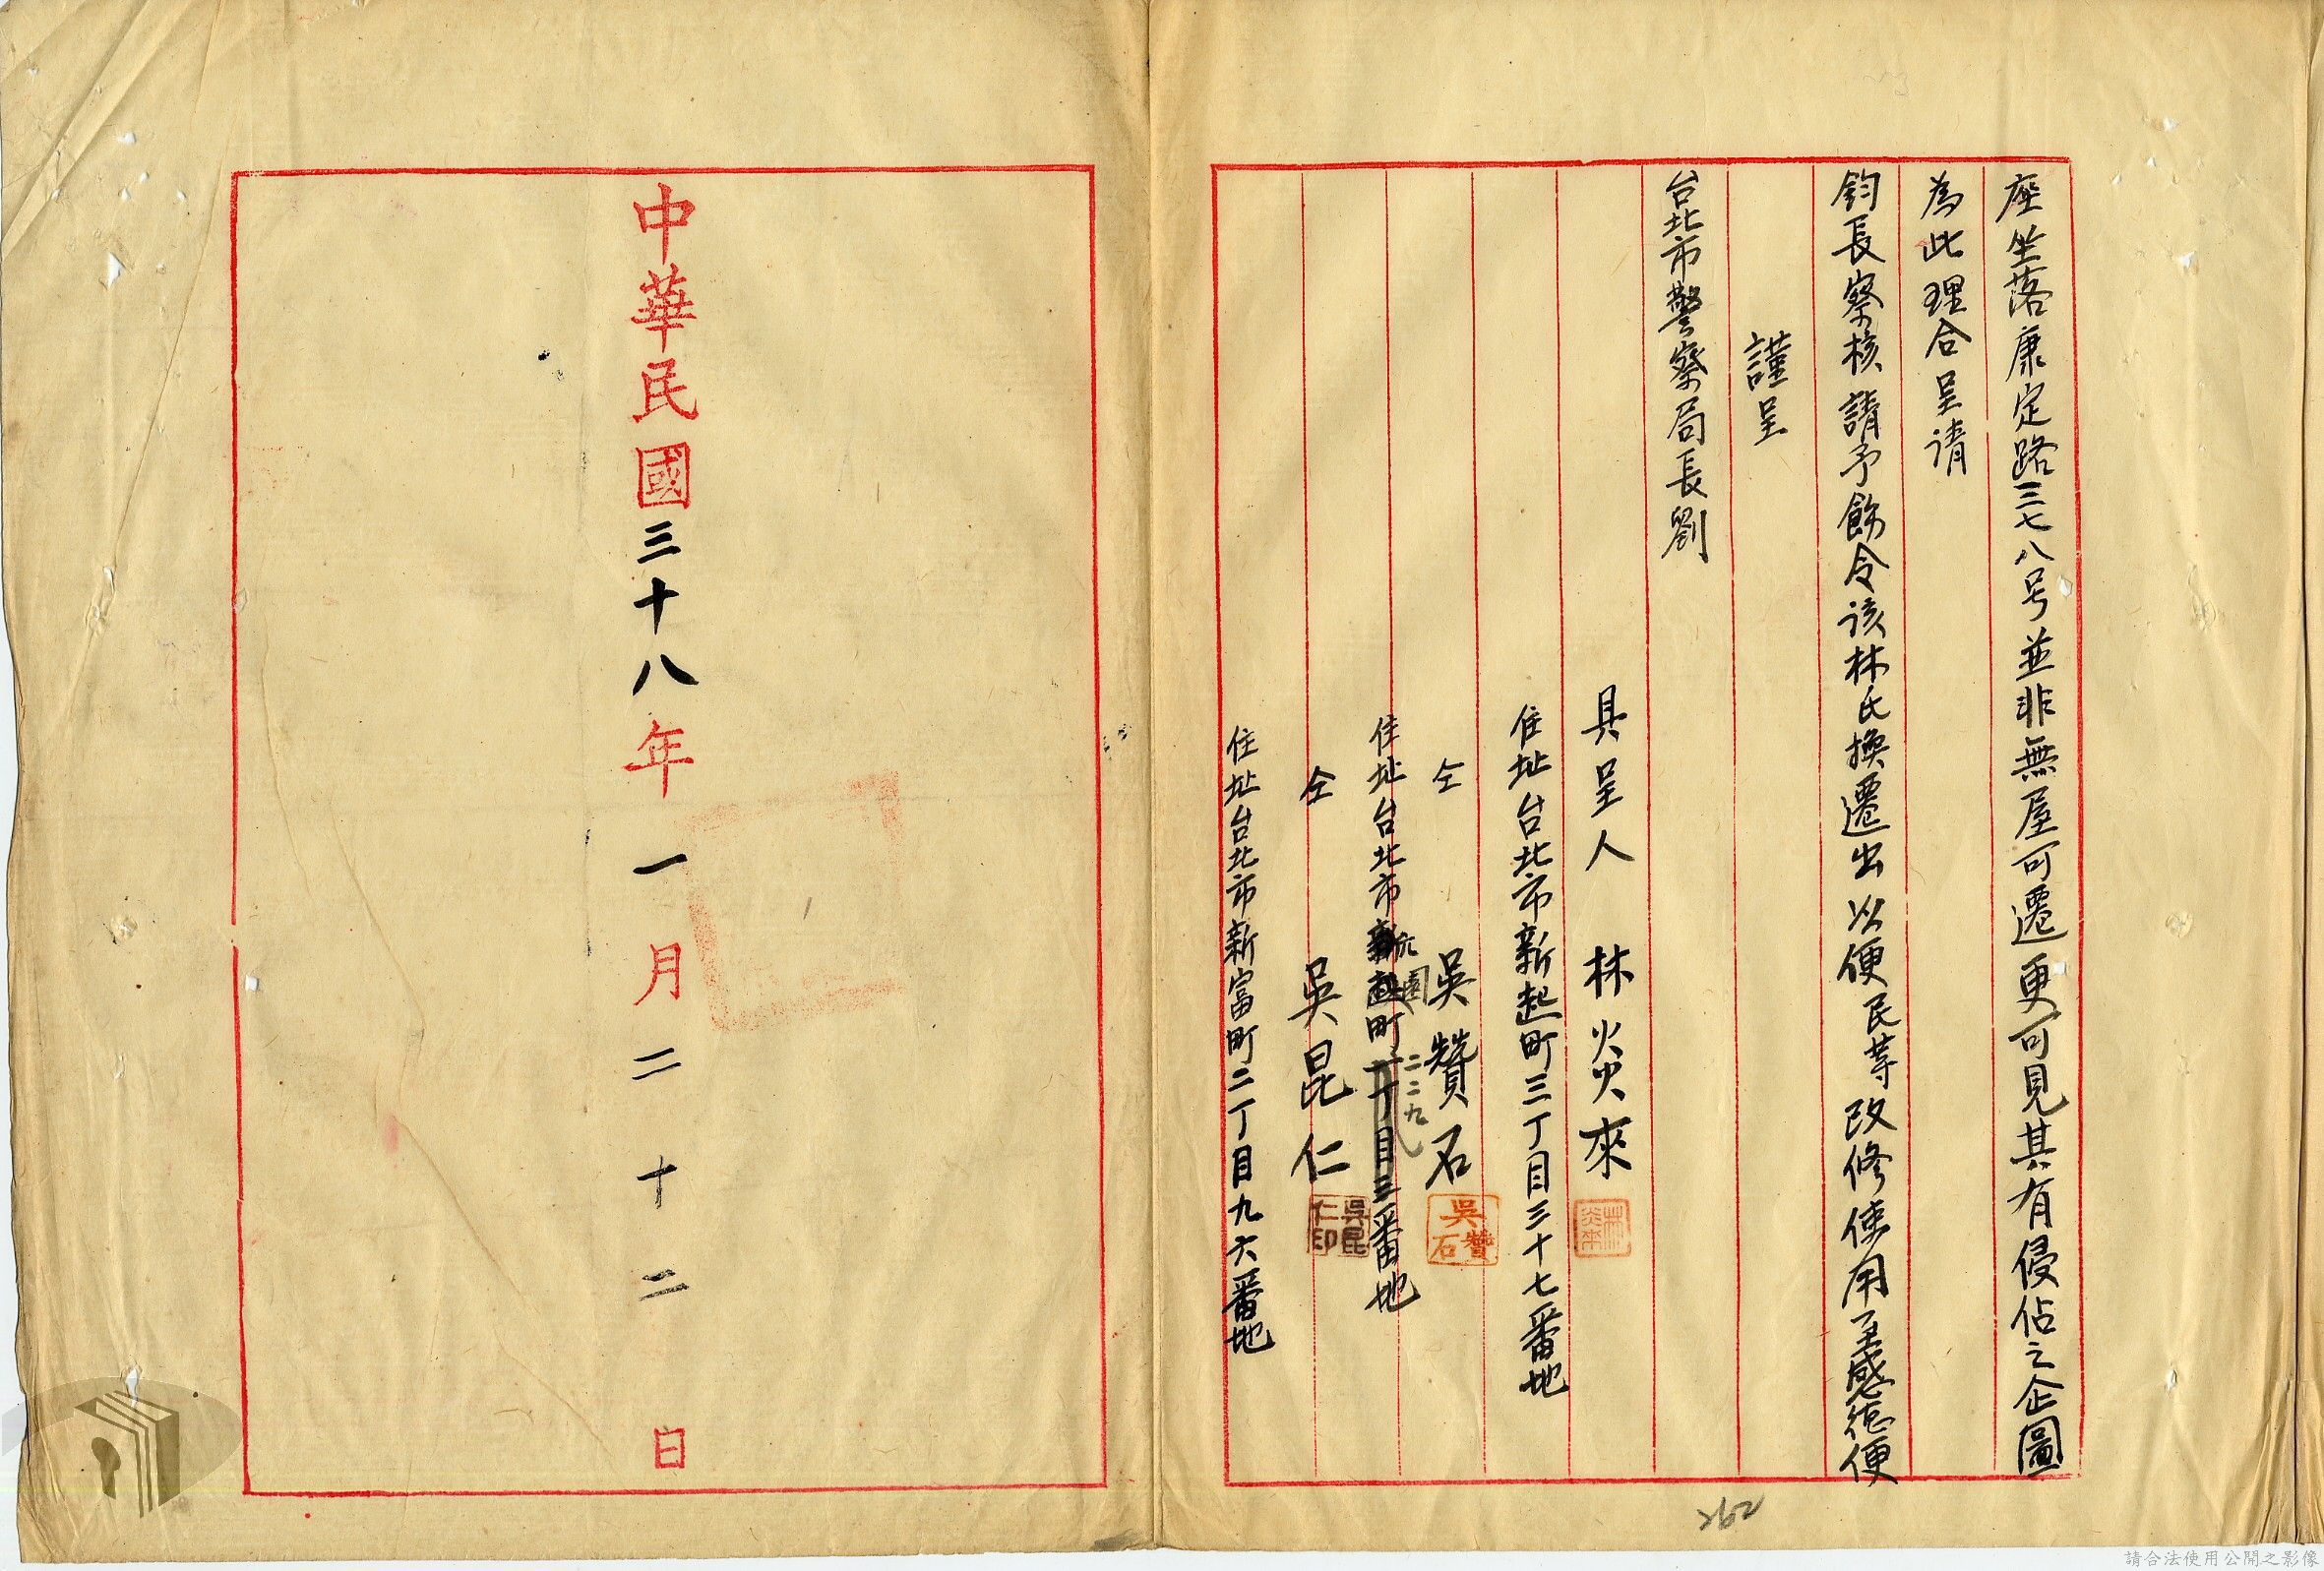 座坐落康定路三七八号並非無屋可遷更可見其有侵佔之企圖
為此理合呈请
鈞長察核請予飭令該林氏換遷出以便民等改修使用至感德便
謹呈
台北市警察局長劉
具呈人 林炎來
住址台北市新起町三丁目三十七番地
仝 吳贊石
住址台北市 園町二二九番地
仝 吳昆仁
住址台北市新富町二丁目九六番地
林炎來
吳贊石
吳昆仁印
中華民國三十八年一月二十二日
262
請合法使用公開之影像